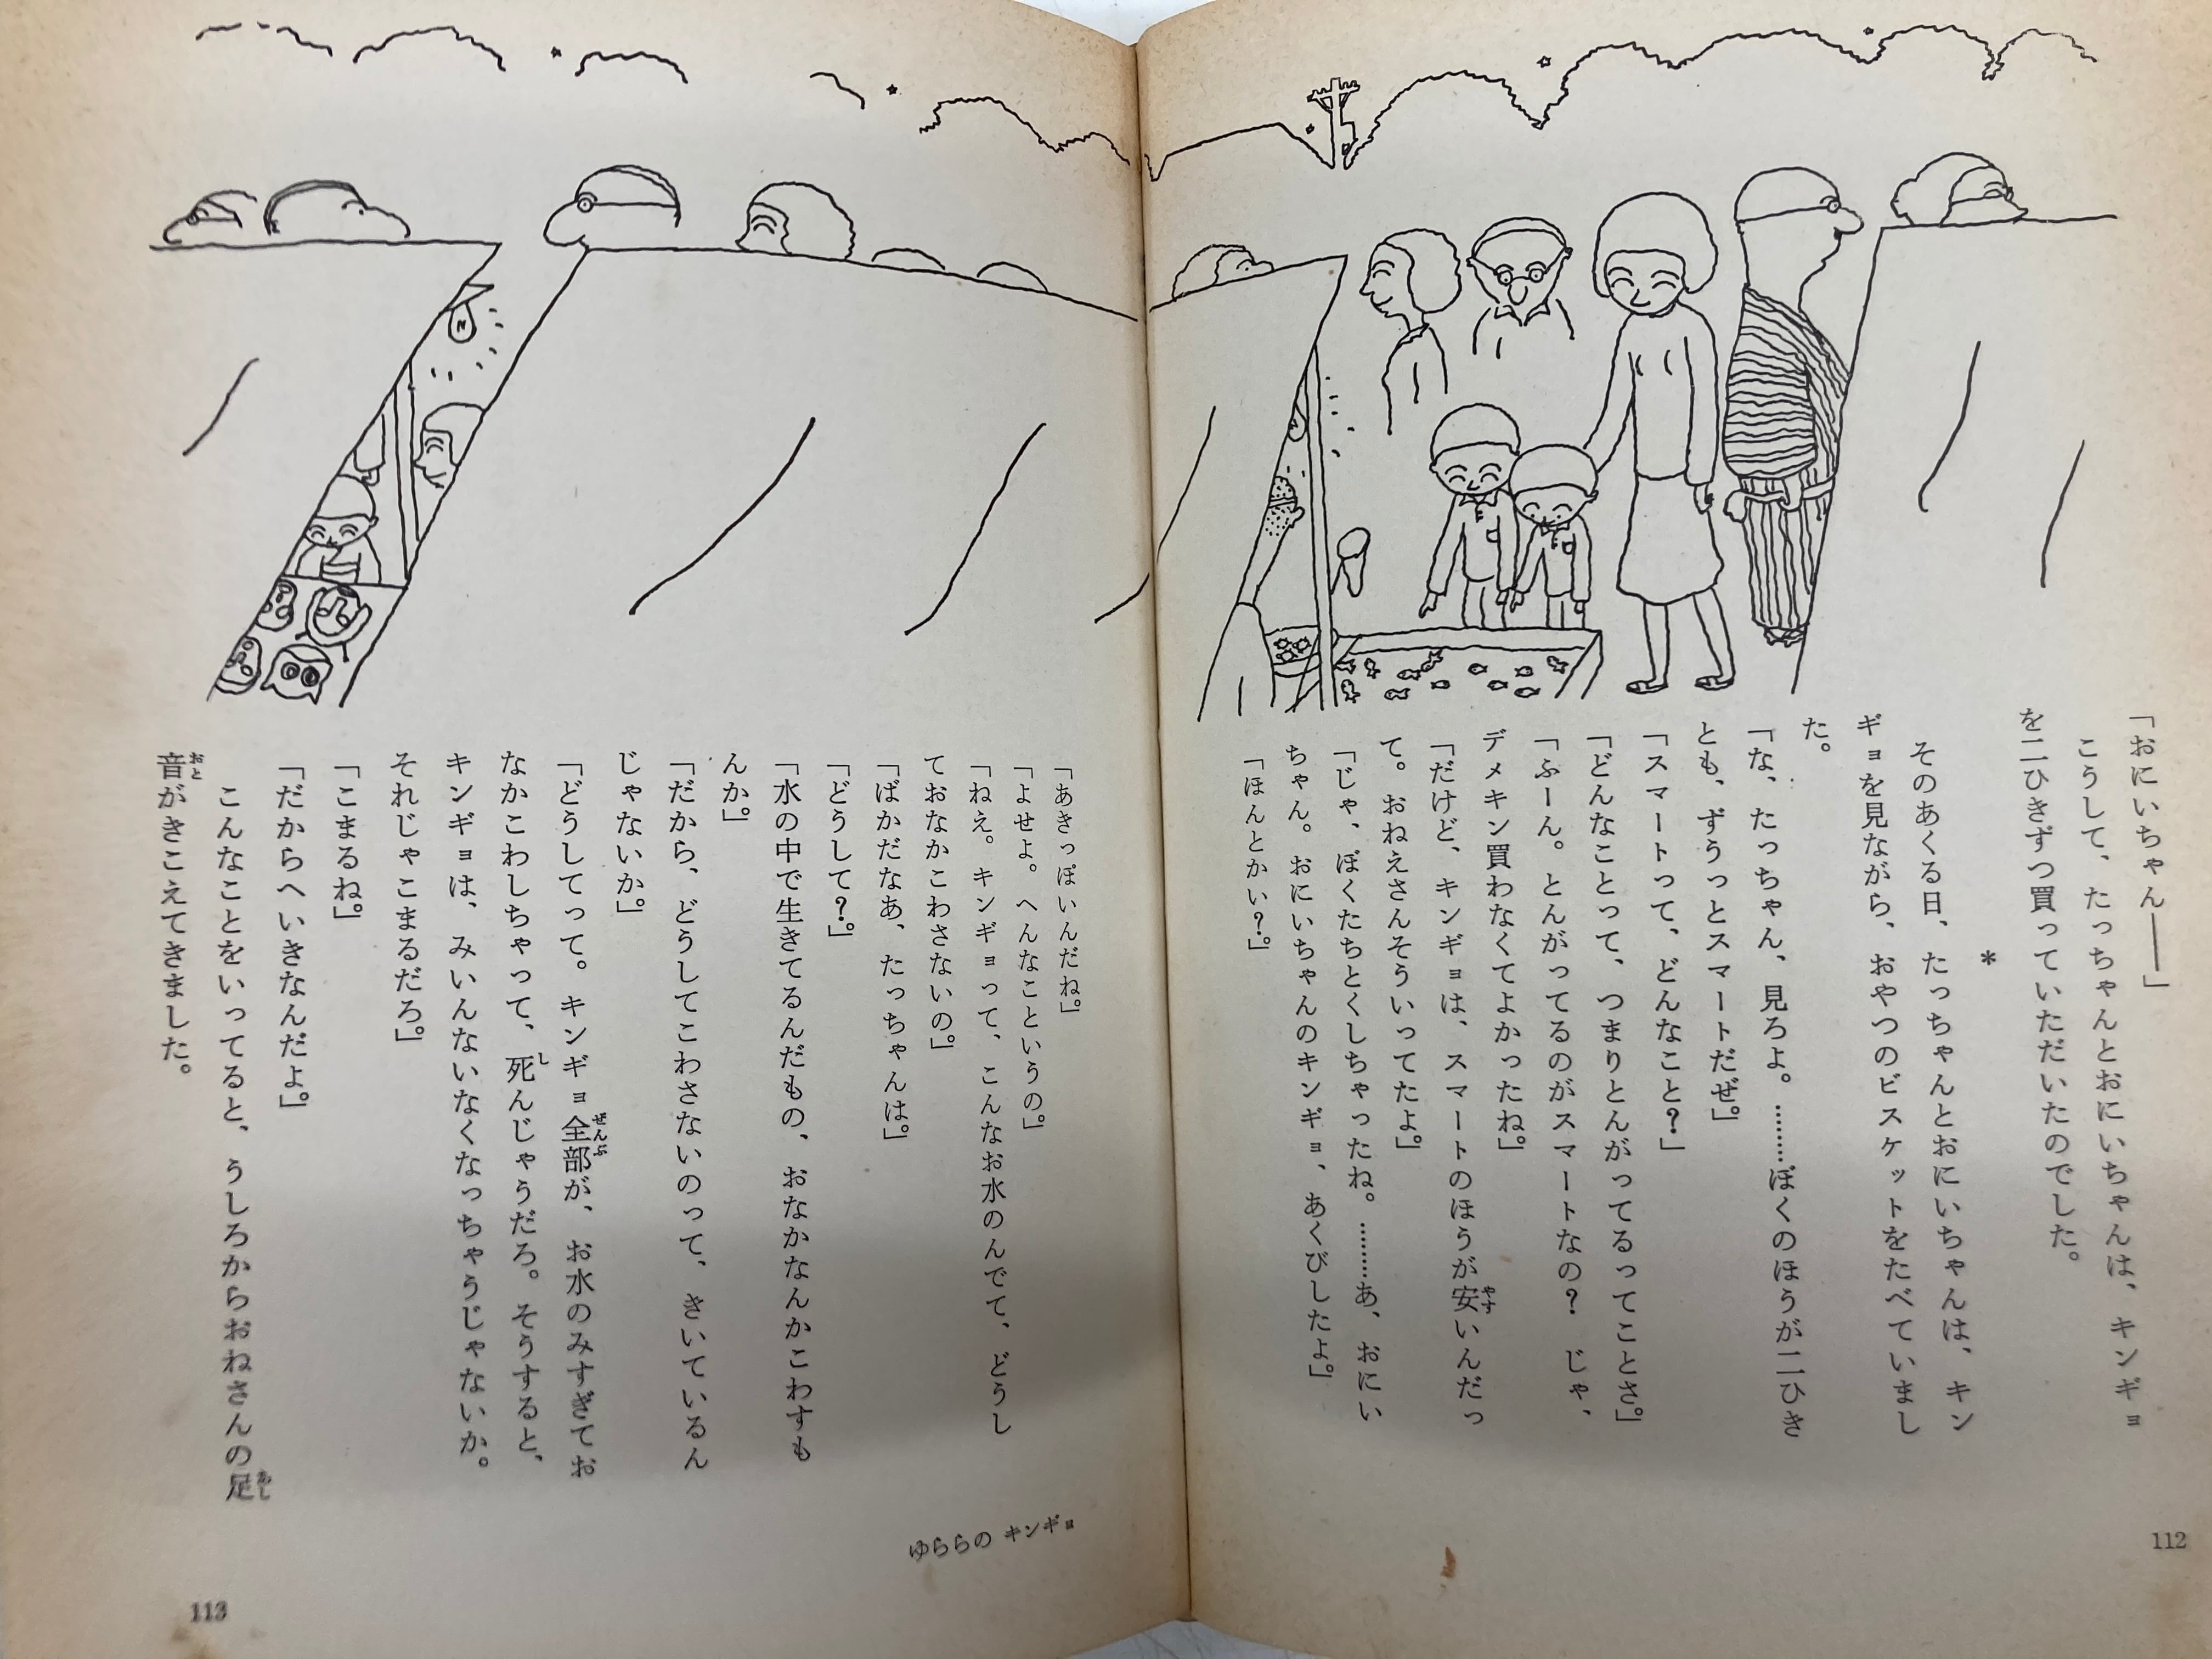 「おにいちゃん――」
こうして、たっちゃんとおにいちゃんは、キンギョ
を二ひきずつ買っていただいたのでした。
＊
そのあくる日、たっちゃんとおにいちゃんは、キン
ギョを見ながら、おやつのビスケットをたべていまし
た。
「な、たっちゃん、見ろよ。………ぼくのほうが二ひき
とも、ずうっとスマートだぜ。」
「スマートって、どんなこと？」
「どんなことって、つまりとんがってるってことさ。」
「ふーん。とんがってるのがスマートなの？　じゃ、
デメキン買わなくてよかったね。」
「だけど、キンギョは、スマートのほうが安いんだっ
て。おねえさんそういってたよ。」
「じゃ、ぼくたちとくしちゃったね。………あ、おにい
ちゃん。おにいちゃんのキンギョ、あくびしたよ。」
「ほんとかい？。」
やす
112
「あきっぽいんだね。」
「よせよ。へんなこというの。」
「ねえ。キンギョって、こんなお水のんでて、どうし
ておなかこわさないの。」
「ばかだなあ、たっちゃんは。」
「どうして？。」
「水の中で生きてるんだもの、おなかなんかこわすも
んか。」
「だから、どうしてこわさないのって、きいているん
じゃないか。」
「どうしてって。キンギョ全部が、お水のみすぎてお
なかこわしちゃって、死んじゃうだろ。そうすると、
キンギョは、みいんないなくなっちゃうじゃないか。
それじゃこまるだろ。」
「こまるね。」
「だからへいきなんだよ。」
こんなことをいってると、うしろからおねさんの足
音がきこえてきました。
ぜんぶ
し
あし
おと
ゆららの キンギョ
113
N